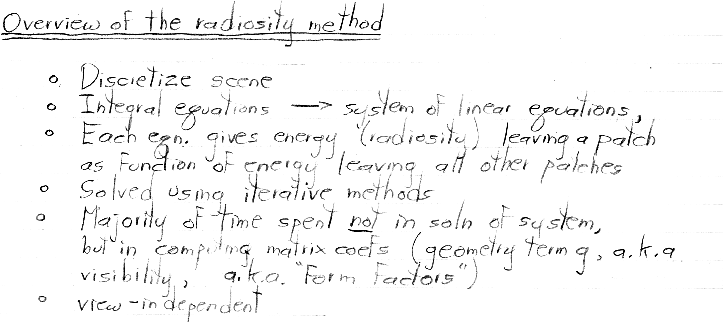 Overview of the radiosity method
o Discretize scene
o Integral equations → system of linear equations,
o Each eqn. gives energy (radiosity) leaving a patch
as function of energy leaving all other patches
o Solved using iterative methods
o Majority of time spent not in soln of system,
but in computing matrix coefs (geometry term g, a.k.a.
visibility, a.k.a. "Form Factors")
o view-independent